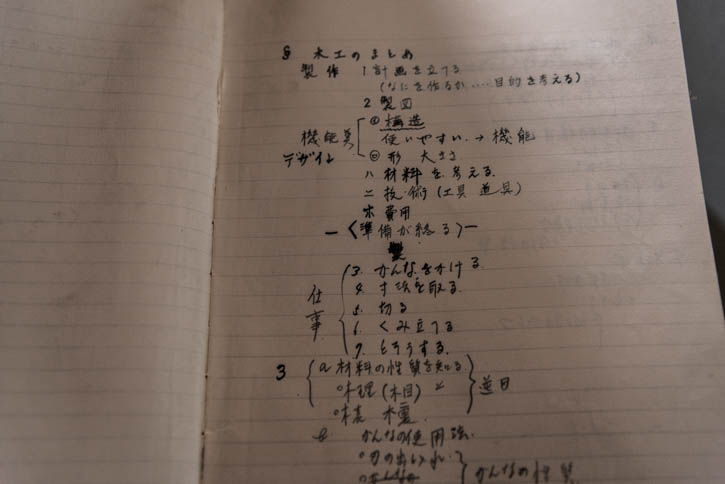 § 木工のまとめ
製作 1 計画を立てる
(なにを作るか‥‥目的を考える)
2 製図
構造
機能美 使いやすい → 機能
デザイン 形 大きさ
ハ 材料を考える
ニ 技術(工具 道具)
ホ 費用
―〈準備が終る〉―
製
仕事 3. かんなをかける
4. 寸法を取る
5. 切る
6. くみ立てる
7. とそうする。
3 a 材料の性質を知る
木理(木目)と
木表 木裏
かんなの使用法.
刃の出し入れ.
かんなの